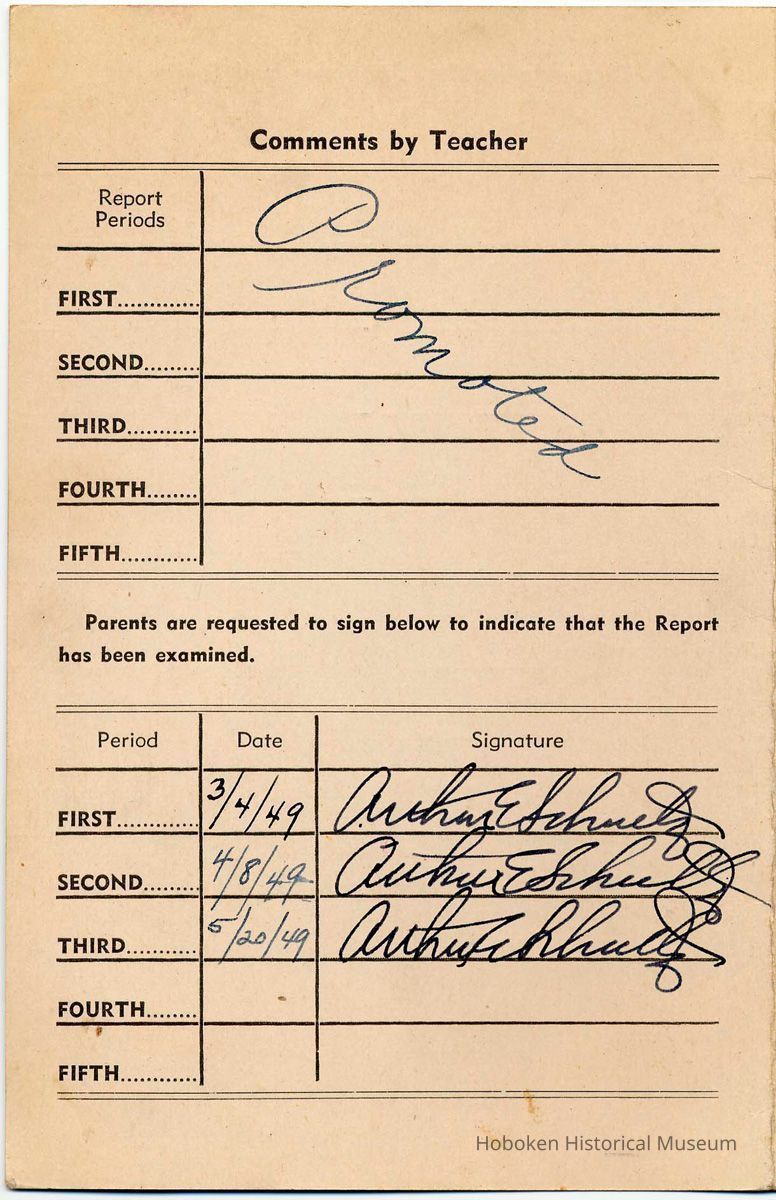 Comments by Teacher
Report
Periods
Promoted
FIRST............
SECOND.........
THIRD...........
FOURTH........
FIFTH............
Parents are requested to sign below to indicate that the Report
has been examined.
Period Date Signature
FIRST............ 3/4/49 Arthur E Schultz
SECOND......... 4/8/49 Arthur E Schultz
THIRD........... 5/20/49 Arthur E Schultz
FOURTH........
FIFTH............
Hoboken Historical Museum